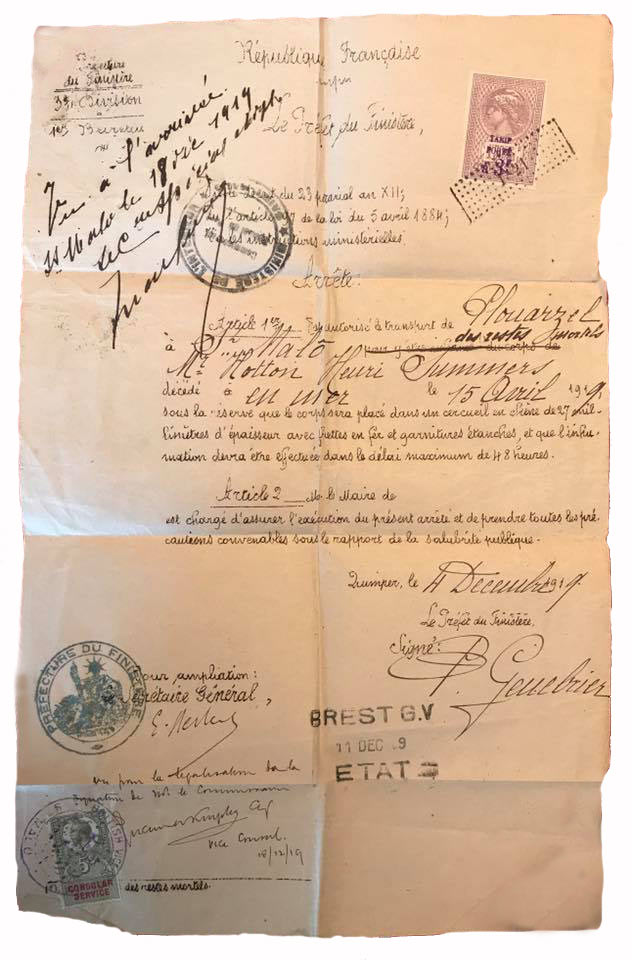 Préfecture
du Finistère
3e Division
1er Bureau
République Française
Le Préfet du Finistère,
TARIF
3F
Vu à l'arrivée
St Malo le 18 Dec 1919
Le Cre spécial adjt
Vu le décret du 23 prairial an XII;
Vu l'article 97 de la loi du 5 avril 1884;
Vu les instructions ministérielles
MINISTERE DE L'INTERIEUR
Arrête:
Article 1er Est autorisé le transport de Plouarzel
à St Malo pour y être inhumé du corps de des restes mortels
Mr Hotton Henri Summers
décédé à en mer le 15 Avril 1919
sous la réserve que le corps sera placé dans un cercueil en chêne de 27 mil-
limètres d'épaisseur avec frettes en fer et garnitures étanches, et que l'inhu-
mation devra être effectuée dans le délai maximum de 48 heures.
Article 2 M. le Maire de
est chargé d'assurer l'exécution du présent arrêté et de prendre toutes les pré-
cautions convenables sous le rapport de la salubrité publique.
Quimper, le 4 Décembre 1919.
Le Préfet du Finistère,
Signé:
P. Genebrier
Pour ampliation:
Le Secrétaire Général,
PREFECTURE DU FINISTERE
BREST G.V
11 DEC 9
ETAT
Vu pour la légalisation de la
signature de Mr le Commissaire
Vice Consul
18/12/19
BRITISH VICE
5/-
CONSULAR
SERVICE
des restes mortels.